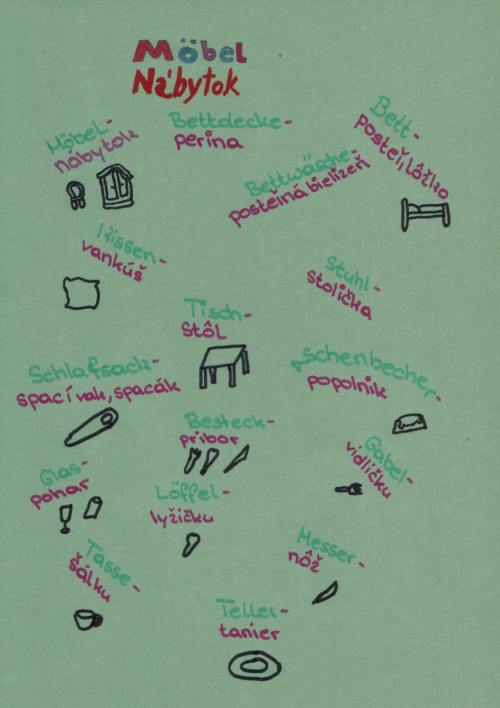 Möbel
Nábytok
Möbel-
nábytok
Bettdecke-
perina
Bett-
posteľ, lôžko
Bettwäsche-
posteľná bielizeň
Kissen-
vankúš
Stuhl-
stolička
Tisch-
stôl
Schlafsack-
spací vak, spacák
schenbecher-
popolník
Besteck-
príbor
Gabel-
vidličku
Glas-
pohár
Löffel-
lyžičku
Messer-
nôž
Tasse-
šálku
Teller-
tanier